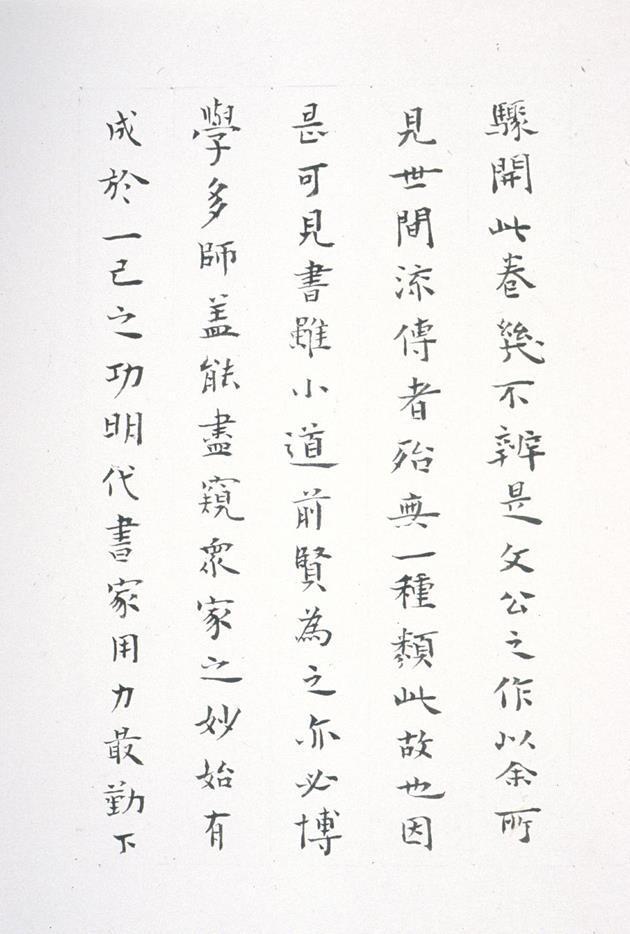 驟開此卷幾不辨是文公之作以余所
見世間流傳者殆無一種類此故也因
是可見書雖小道前賢為之亦必博
學多師蓋能盡窺眾家之妙始有
成於一己之功明代書家用力最勤下